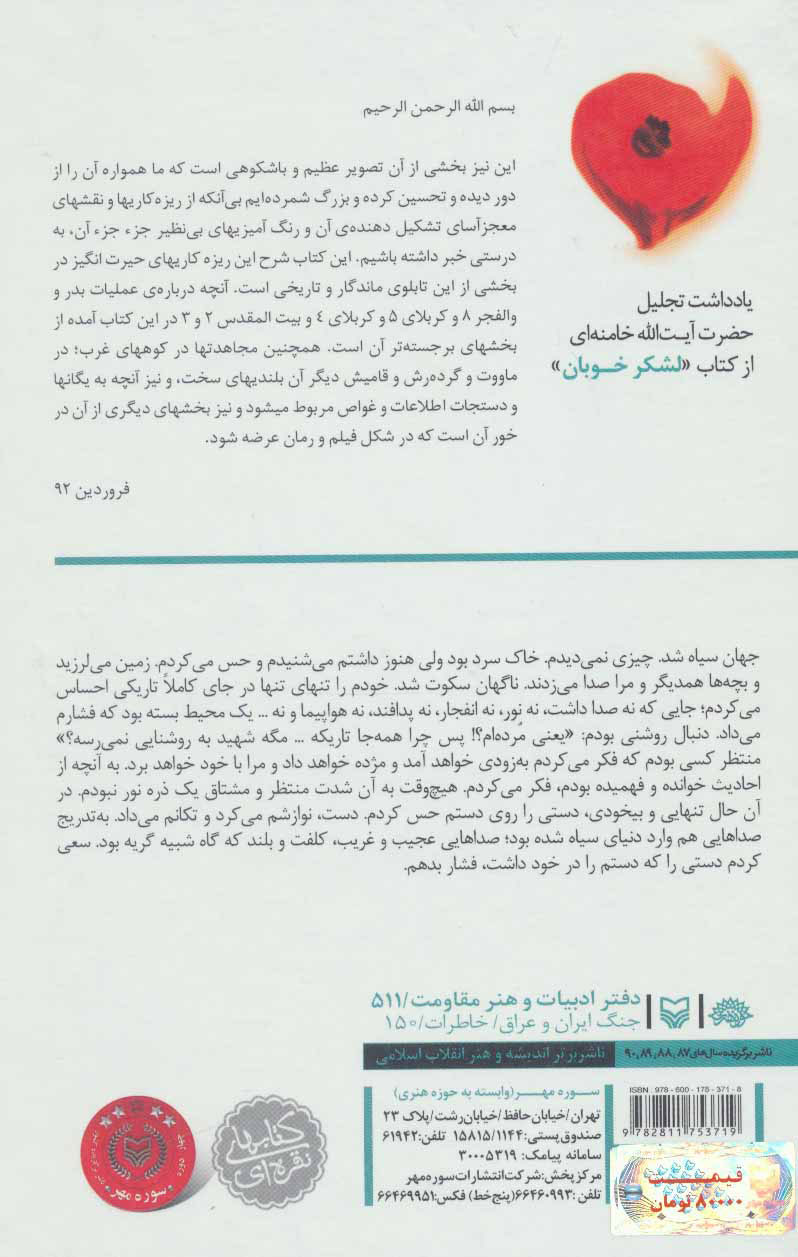 بسم الله الرحمن الرحیم
این نیز بخشی از آن تصویر عظیم و باشکوهی است که ما همواره آن را از
دور دیده و تحسین کرده و بزرگ شمرده‌ایم بی‌آنکه از ریزه‌کاریها و نقشهای
معجزآسای تشکیل دهنده‌ی آن و رنگ آمیزیهای بی‌نظیر جزء جزء آن، به
درستی خبر داشته باشیم. این کتاب شرح این ریزه کاریهای حیرت انگیز در
بخشی از این تابلوی ماندگار و تاریخی است. آنچه درباره‌ی عملیات بدر و
والفجر ۸ و کربلای ۵ و کربلای ٤ و بیت المقدس ۲ و ۳ در این کتاب آمده از
بخشهای برجسته‌تر آن است. همچنین مجاهدتها در کوههای غرب؛ در
ماووت و گرده‌رش و قامیش دیگر آن بلندیهای سخت، و نیز آنچه به یگانها
و دستجات اطلاعات و غواص مربوط میشود و نیز بخشهای دیگری از آن در
خور آن است که در شکل فیلم و رمان عرضه شود.
فروردین ۹۲
یادداشت تجلیل
حضرت آیت‌الله خامنه‌ای
از کتاب «لشکر خوبان»
جهان سیاه شد. چیزی نمی‌دیدم. خاک سرد بود ولی هنوز داشتم می‌شنیدم و حس می‌کردم. زمین می‌لرزید
و بچه‌ها همدیگر و مرا صدا می‌زدند. ناگهان سکوت شد. خودم را تنهای تنها در جای کاملاً تاریکی احساس
می‌کردم؛ جایی که نه صدا داشت، نه نور، نه انفجار، نه پدافند، نه هواپیما و نه ... یک محیط بسته بود که فشارم
می‌داد. دنبال روشنی بودم: «یعنی مُرده‌ام؟! پس چرا همه‌جا تاریکه ... مگه شهید به روشنایی نمی‌رسه؟»
منتظر کسی بودم که فکر می‌کردم به‌زودی خواهد آمد و مژده خواهد داد و مرا با خود خواهد برد. به آنچه از
احادیث خوانده و فهمیده بودم، فکر می‌کردم. هیچ‌وقت به آن شدت منتظر و مشتاق یک ذره نور نبودم. در
آن حال تنهایی و بیخودی، دستی را روی دستم حس کردم. دست، نوازشم می‌کرد و تکانم می‌داد. به‌تدریج
صداهایی هم وارد دنیای سیاه شده بود؛ صداهایی عجیب و غریب، کلفت و بلند که گاه شبیه گریه بود. سعی
کردم دستی را که دستم را در خود داشت، فشار بدهم.
دفتر ادبیات و هنر مقاومت/۵۱۱
جنگ ایران و عراق/ خاطرات/۱۵۰
ناشر برگزیده سال‌های ۸۷، ۸۸، ۸۹، ۹۰
ناشر برتر اندیشه و هنر انقلاب اسلامی
سوره مهر (وابسته به حوزه هنری)
تهران/خیابان حافظ/خیابان رشت/پلاک ۲۳
صندوق پستی: ۱۵۸۱۵/۱۱۴۴ تلفن: ۶۱۹۴۲
سامانه پیامک: ۳۰۰۰۵۳۱۹
مرکز پخش: شرکت انتشارات سوره مهر
تلفن: ۶۶۴۶۰۹۹۳(پنج خط) فکس: ۶۶۴۶۹۹۵۱
ISBN : 978 - 600 - 175 - 371 - 8
9 782811 753719
قیمت
۸۰۰۰۰ تومان
کتاب‌های
نقره‌ای
سوره مهر